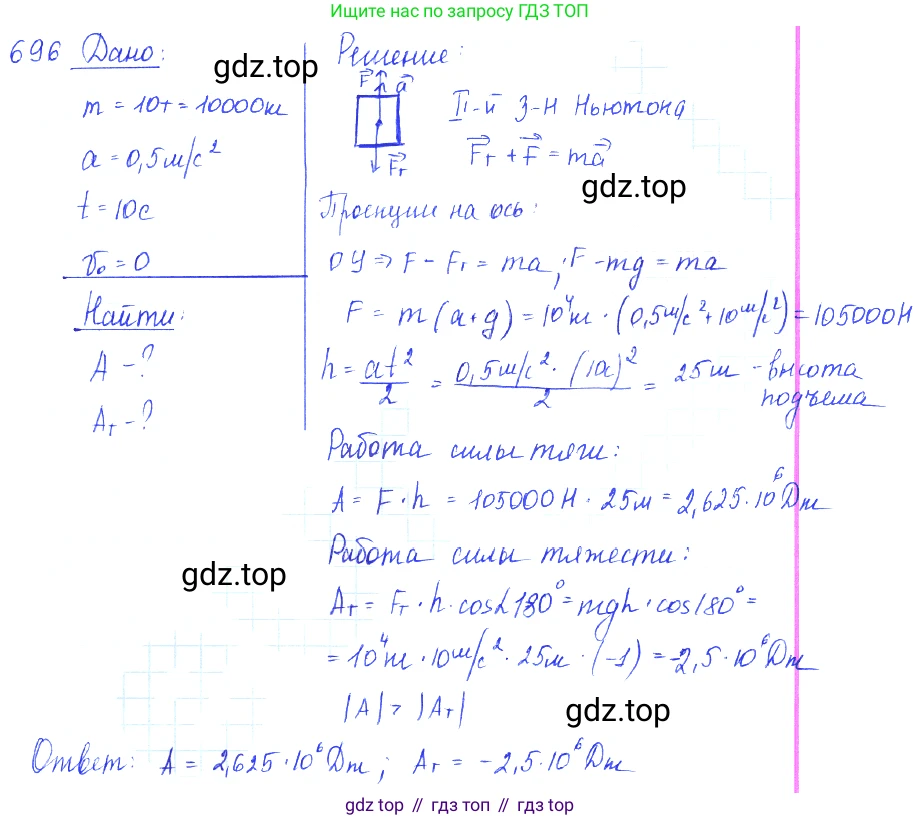 Ищите нас по запросу ГДЗ ТОП
696 Дано:
m = 10т = 10000кг
a = 0,5м/с²
t = 10с
v₀ = 0
Найти:
A - ?
Aт - ?
gdz.top
Решение:
F a
Fт
II-й З-Н Ньютона
Fт + F = ma
gdz.top
Проекции на ось:
OY => F - Fт = ma; F - mg = ma
F = m(a+g) = 10⁴кг · (0,5м/с² + 10м/с²) = 105000Н
h = at²/2 = 0,5м/с² · (10с)²/2 = 25м - высота
подъема
Работа силы тяги:
A = F · h = 105000Н · 25м = 2,625 · 10⁶Дж
Работа силы тяжести:
gdz.top
Aт = Fт · h · cosα 180° = mgh · cos180° =
= 10⁴кг · 10м/с² · 25м · (-1) = -2,5 · 10⁶Дж
|A| > |Aт|
gdz.top
Ответ: A = 2,625 · 10⁶Дж; Aт = -2,5 · 10⁶Дж
gdz.top // гдз топ // гдз top